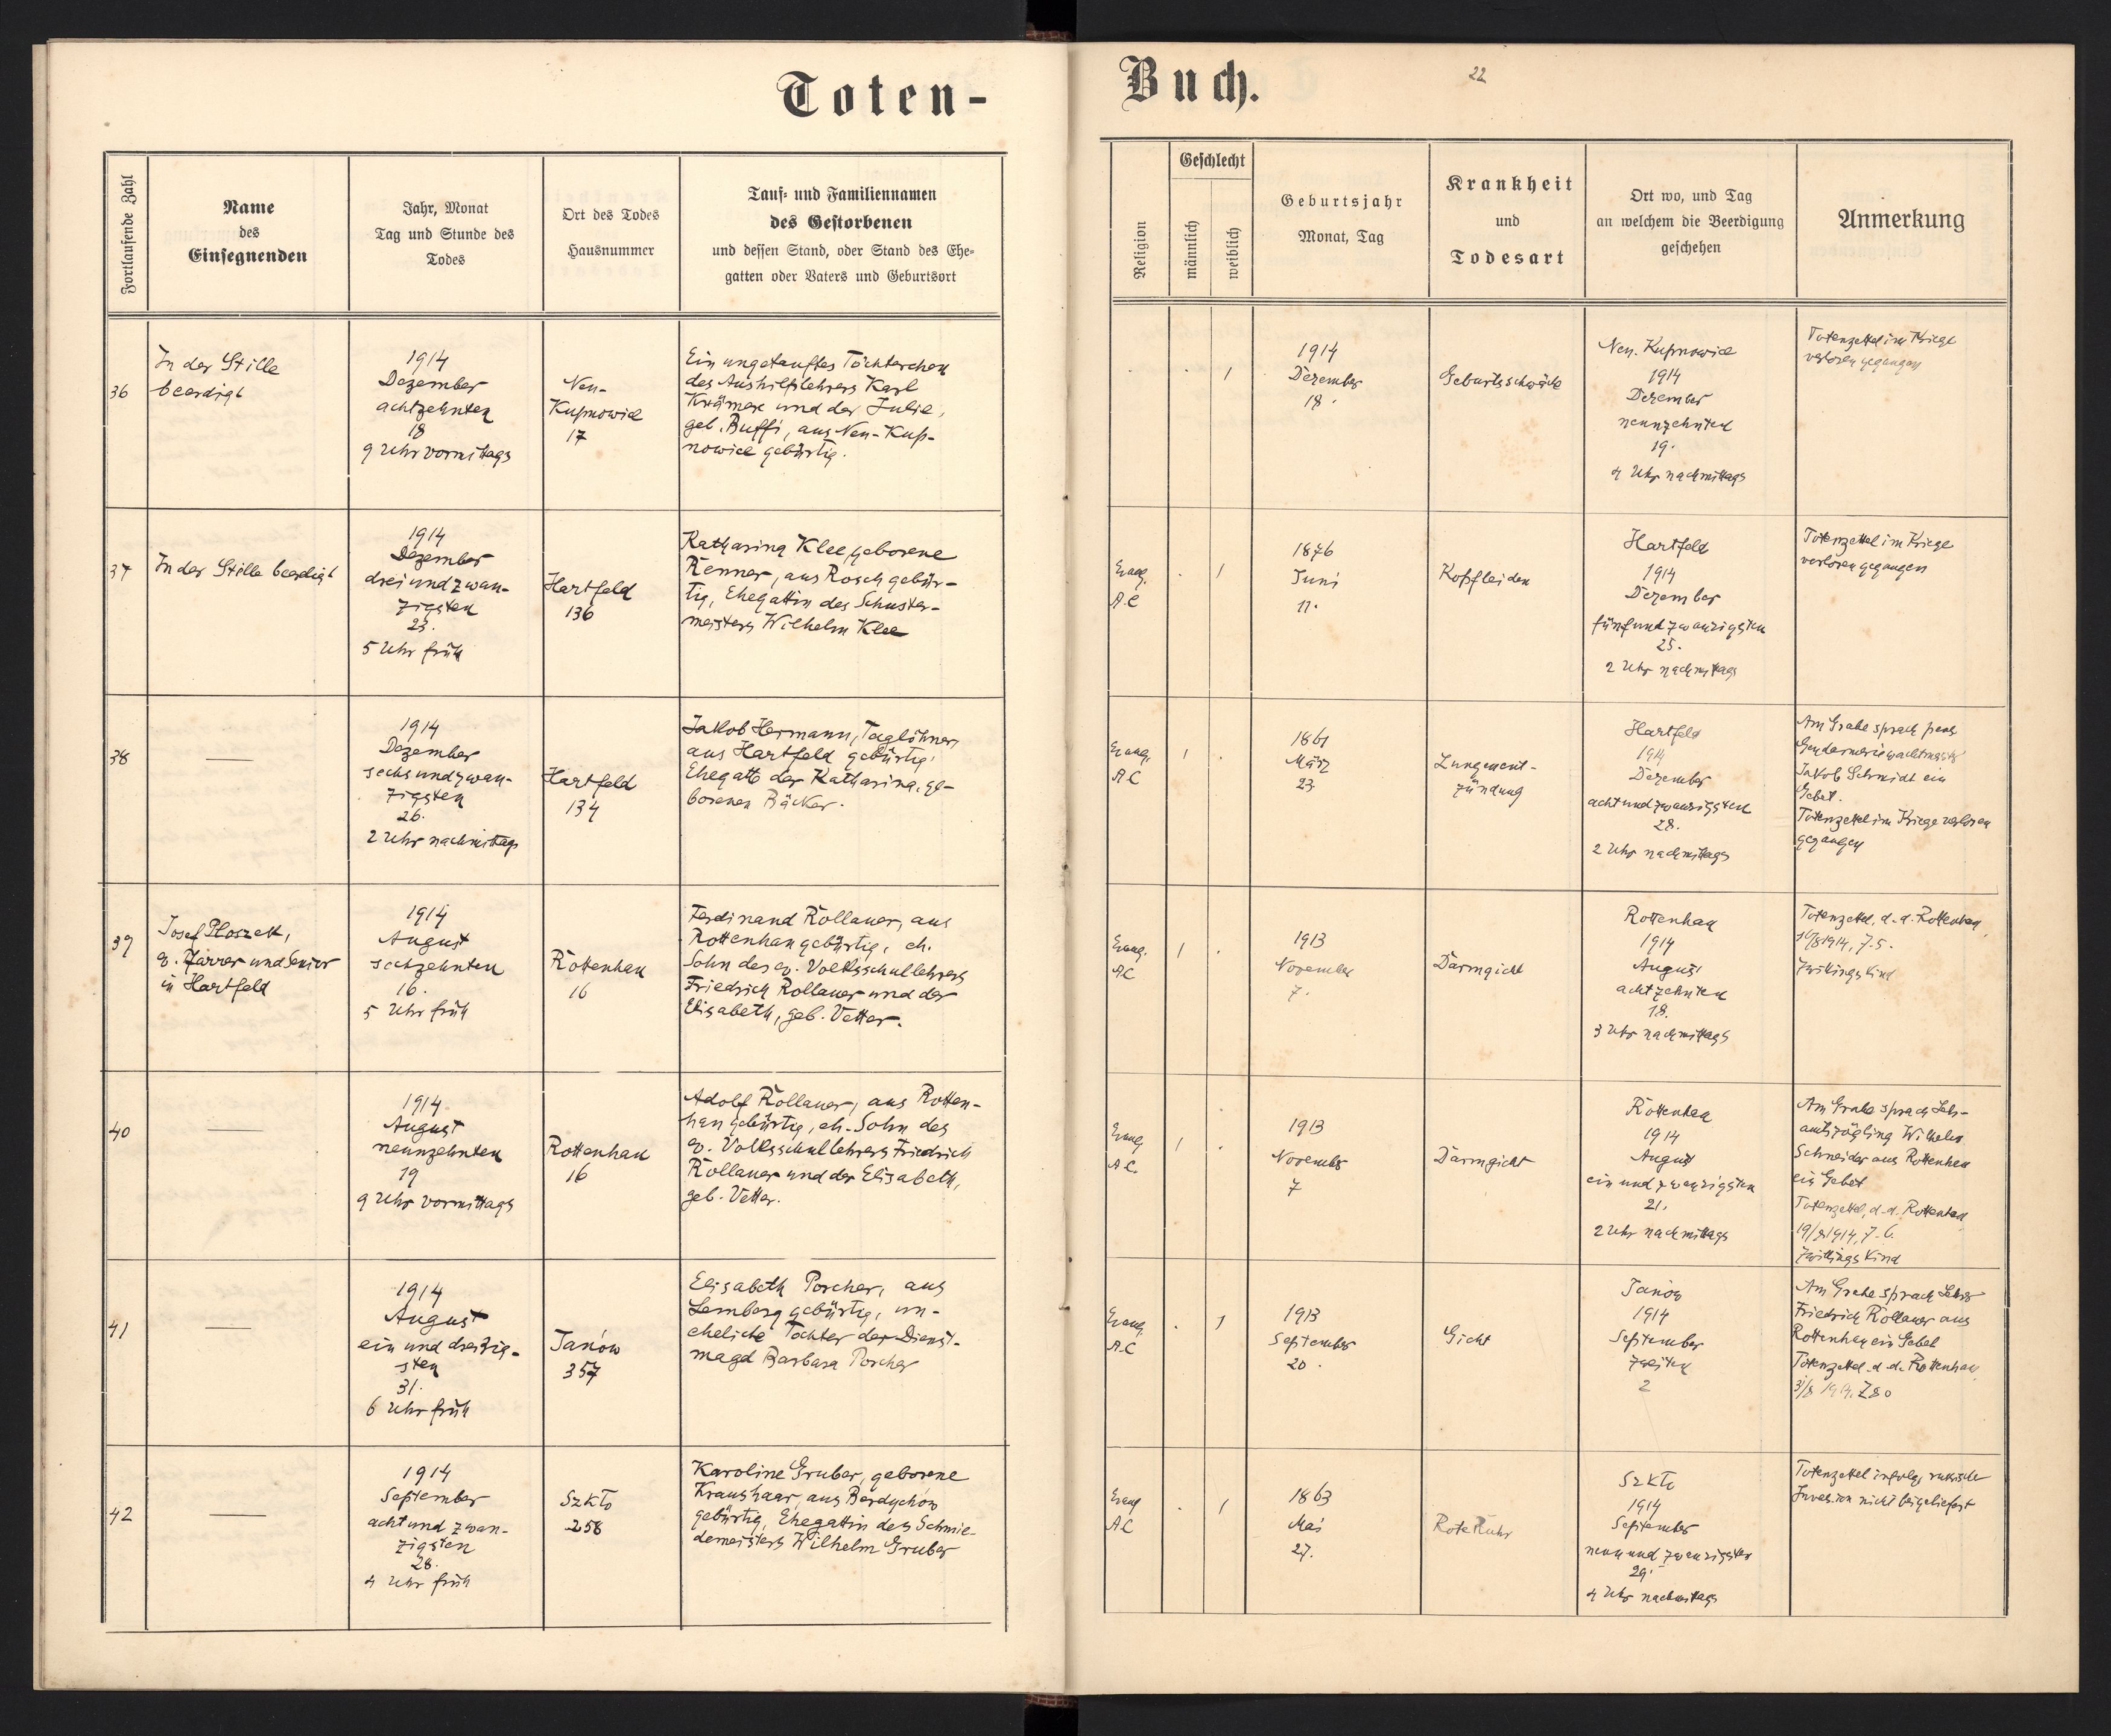 Toten-
Buch.
22
Fortlaufende Zahl
Name
des
Einsegnenden
Jahr, Monat
Tag und Stunde des
Todes
Ort des Todes
Hausnummer
Tauf- und Familiennamen
des Gestorbenen
und dessen Stand, oder Stand des Ehe-
gatten oder Vaters und Geburtsort
Religion
Geschlecht
männlich
weiblich
Geburtsjahr
Monat, Tag
Krankheit
und
Todesart
Ort wo, und Tag
an welchem die Beerdigung
geschehen
Anmerkung
36
In der Stille
beerdigt
1914
Dezember
achtzehnten
18
9 Uhr vormittags
Neu-
Kupnowice
17
Ein ungetauftes Töchterchen
des Aushilfslehrers Karl
Krämer und der Julie,
geb. Buffi, aus Neu-Kup-
nowice gebürtig.
1
1914
Dezember
18.
Geburtsschwäche
Neu. Kupnowice
1914
Dezember
neunzehnten
19.
4 Uhr nachmittags
Totenzettel im Kriege
verloren gegangen
37
In der Stille beerdigt
1914
Dezember
dreiundzwan-
zigsten
23.
5 Uhr früh
Hartfeld
136
Katharina Klee, geborene
Renner, aus Rosch gebür-
tig, Ehegattin des Schuster-
meisters Wilhelm Klee
Evang.
A.C
1
1876
Juni
11.
Kopfleiden
Hartfeld
1914
Dezember
fünfundzwanzigsten
25.
2 Uhr nachmittags
Totenzettel im Kriege
verloren gegangen
38
—
1914
Dezember
sechsundzwan-
zigsten
26.
2 Uhr nachmittags
Hartfeld
134
Jakob Hermann, Taglöhner,
aus Hartfeld gebürtig,
Ehegatte der Katharina, ge-
borenen Bäcker.
Evang.
AC
1
1861
März
23.
Lungenent-
zündung
Hartfeld
1914
Dezember
achtundzwanzigsten
28.
2 Uhr nachmittags
Am Grabe sprach
Gendarmeriewachtmeister
Jakob Schmidt ein
Gebet.
Totenzettel im Kriege verloren
gegangen
39
Josef Ploszek,
ev. Pfarrer und Senior
in Hartfeld
1914
August
sechzehnten
16.
5 Uhr früh
Rottenhan
16
Ferdinand Rollauer, aus
Rottenhan gebürtig, eh.
Sohn des ev. Volksschullehrers
Friedrich Rollauer und der
Elisabeth, geb. Vetter.
Evang.
AC
1
1913
November
7.
Darmgicht
Rottenhan
1914
August
achtzehnten
18.
3 Uhr nachmittags
Totenzettel, d.d. Rottenhan,
16/8 1914, Z. 5.
Zwillingskind
40
—
1914
August
neunzehnten
19
9 Uhr vormittags
Rottenhan
16
Adolf Rollauer, aus Rotten-
han gebürtig, eh. Sohn des
ev. Volksschullehrers Friedrich
Rollauer und der Elisabeth,
geb. Vetter.
Evang
A.C.
1
1913
November
7
Darmgicht
Rottenhan
1914
August
einundzwanzigsten
21.
2 Uhr nachmittags
Am Grabe sprach Lehr-
amtszögling Wilhelm
Schneider aus Rottenhan
ein Gebet
Totenzettel, d.d. Rottenhan
19/8 1914, Z. 6.
Zwillingskind
41
—
1914
August
ein und dreißig-
sten
31.
6 Uhr früh
Janów
357
Elisabeth Porcher, aus
Lemberg gebürtig, un-
eheliche Tochter der Dienst-
magd Barbara Porcher
Evang.
A.C
1
1913
September
20.
Gicht
Janów
1914
September
zweiten
2
Am Grabe sprach Lehrer
Friedrich Rollauer aus
Rottenhan ein Gebet
Totenzettel d.d. Rottenhan,
31/8 1914,
42
—
1914
September
achtundzwan-
zigsten
28.
4 Uhr früh
Szkło
258
Karoline Gruber, geborene
Kraushaar, aus Berdychów
gebürtig, Ehegattin des Schmie-
demeisters Wilhelm Gruber
Evang
AC
1
1863
Mai
27.
Rote Ruhr
Szkło
1914
September
neunundzwanzigsten
29.
4 Uhr nachmittags
Totenzettel infolge russischer
Invasion nicht beigeliefert